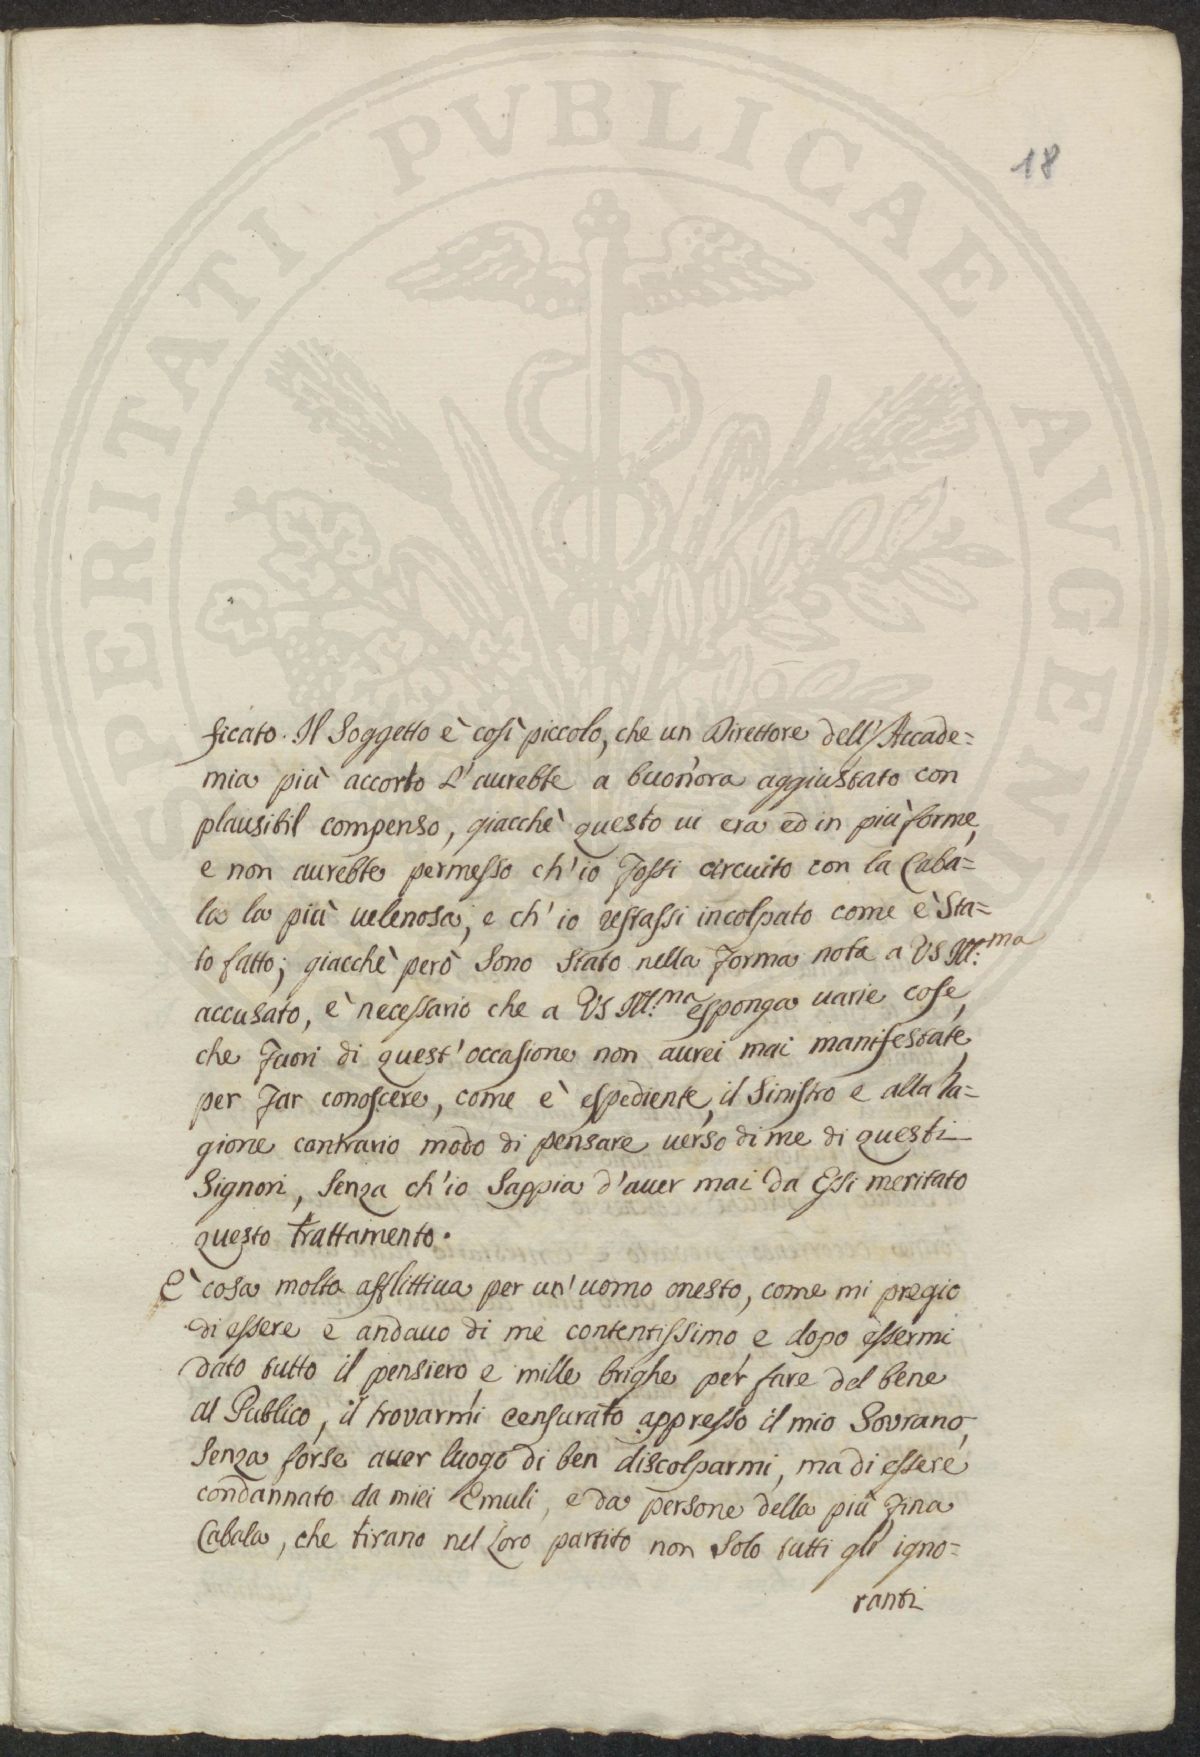 PROSPERITATI PVBLICAE AVGENDAE
18
ficato. Il Soggetto è così piccolo, che un Direttore dell'Accade=
mia più accorto l'aurebbe a buon'ora aggiustato con
plausibil compenso, giacchè questo ui era ed in più forme,
e non aurebbe permesso ch'io fossi circuito con la Caba=
la la più uelenosa, e ch'io restassi incolpato come è sta=
to fatto; giacchè però sono stato nella forma nota a VS Ill:ma
accusato, è necessario che a VS Ill:ma esponga uarie cose,
che fuori di quest'occasione non aurei mai manifestate,
per far conoscere, come è espediente, il Sinistro e alla Ra=
gione contrario modo di pensare uerso di me di questi
Signori, senza ch'io sappia d'auer mai da Essi meritato
questo trattamento.
È cosa molto afflittiua per un'uomo onesto, come mi pregio
di essere e andauo di me contentissimo, e dopo essermi
dato tutto il pensiero e mille brighe per fare del bene
al Publico, il trovarmi censurato appresso il mio Sovrano,
senza forse auer luogo di ben discolparmi, ma di essere
condannato da miei Emuli, e da persone della più fina
Cabala, che tirano nel loro partito non solo tutti gli igno=
ranti